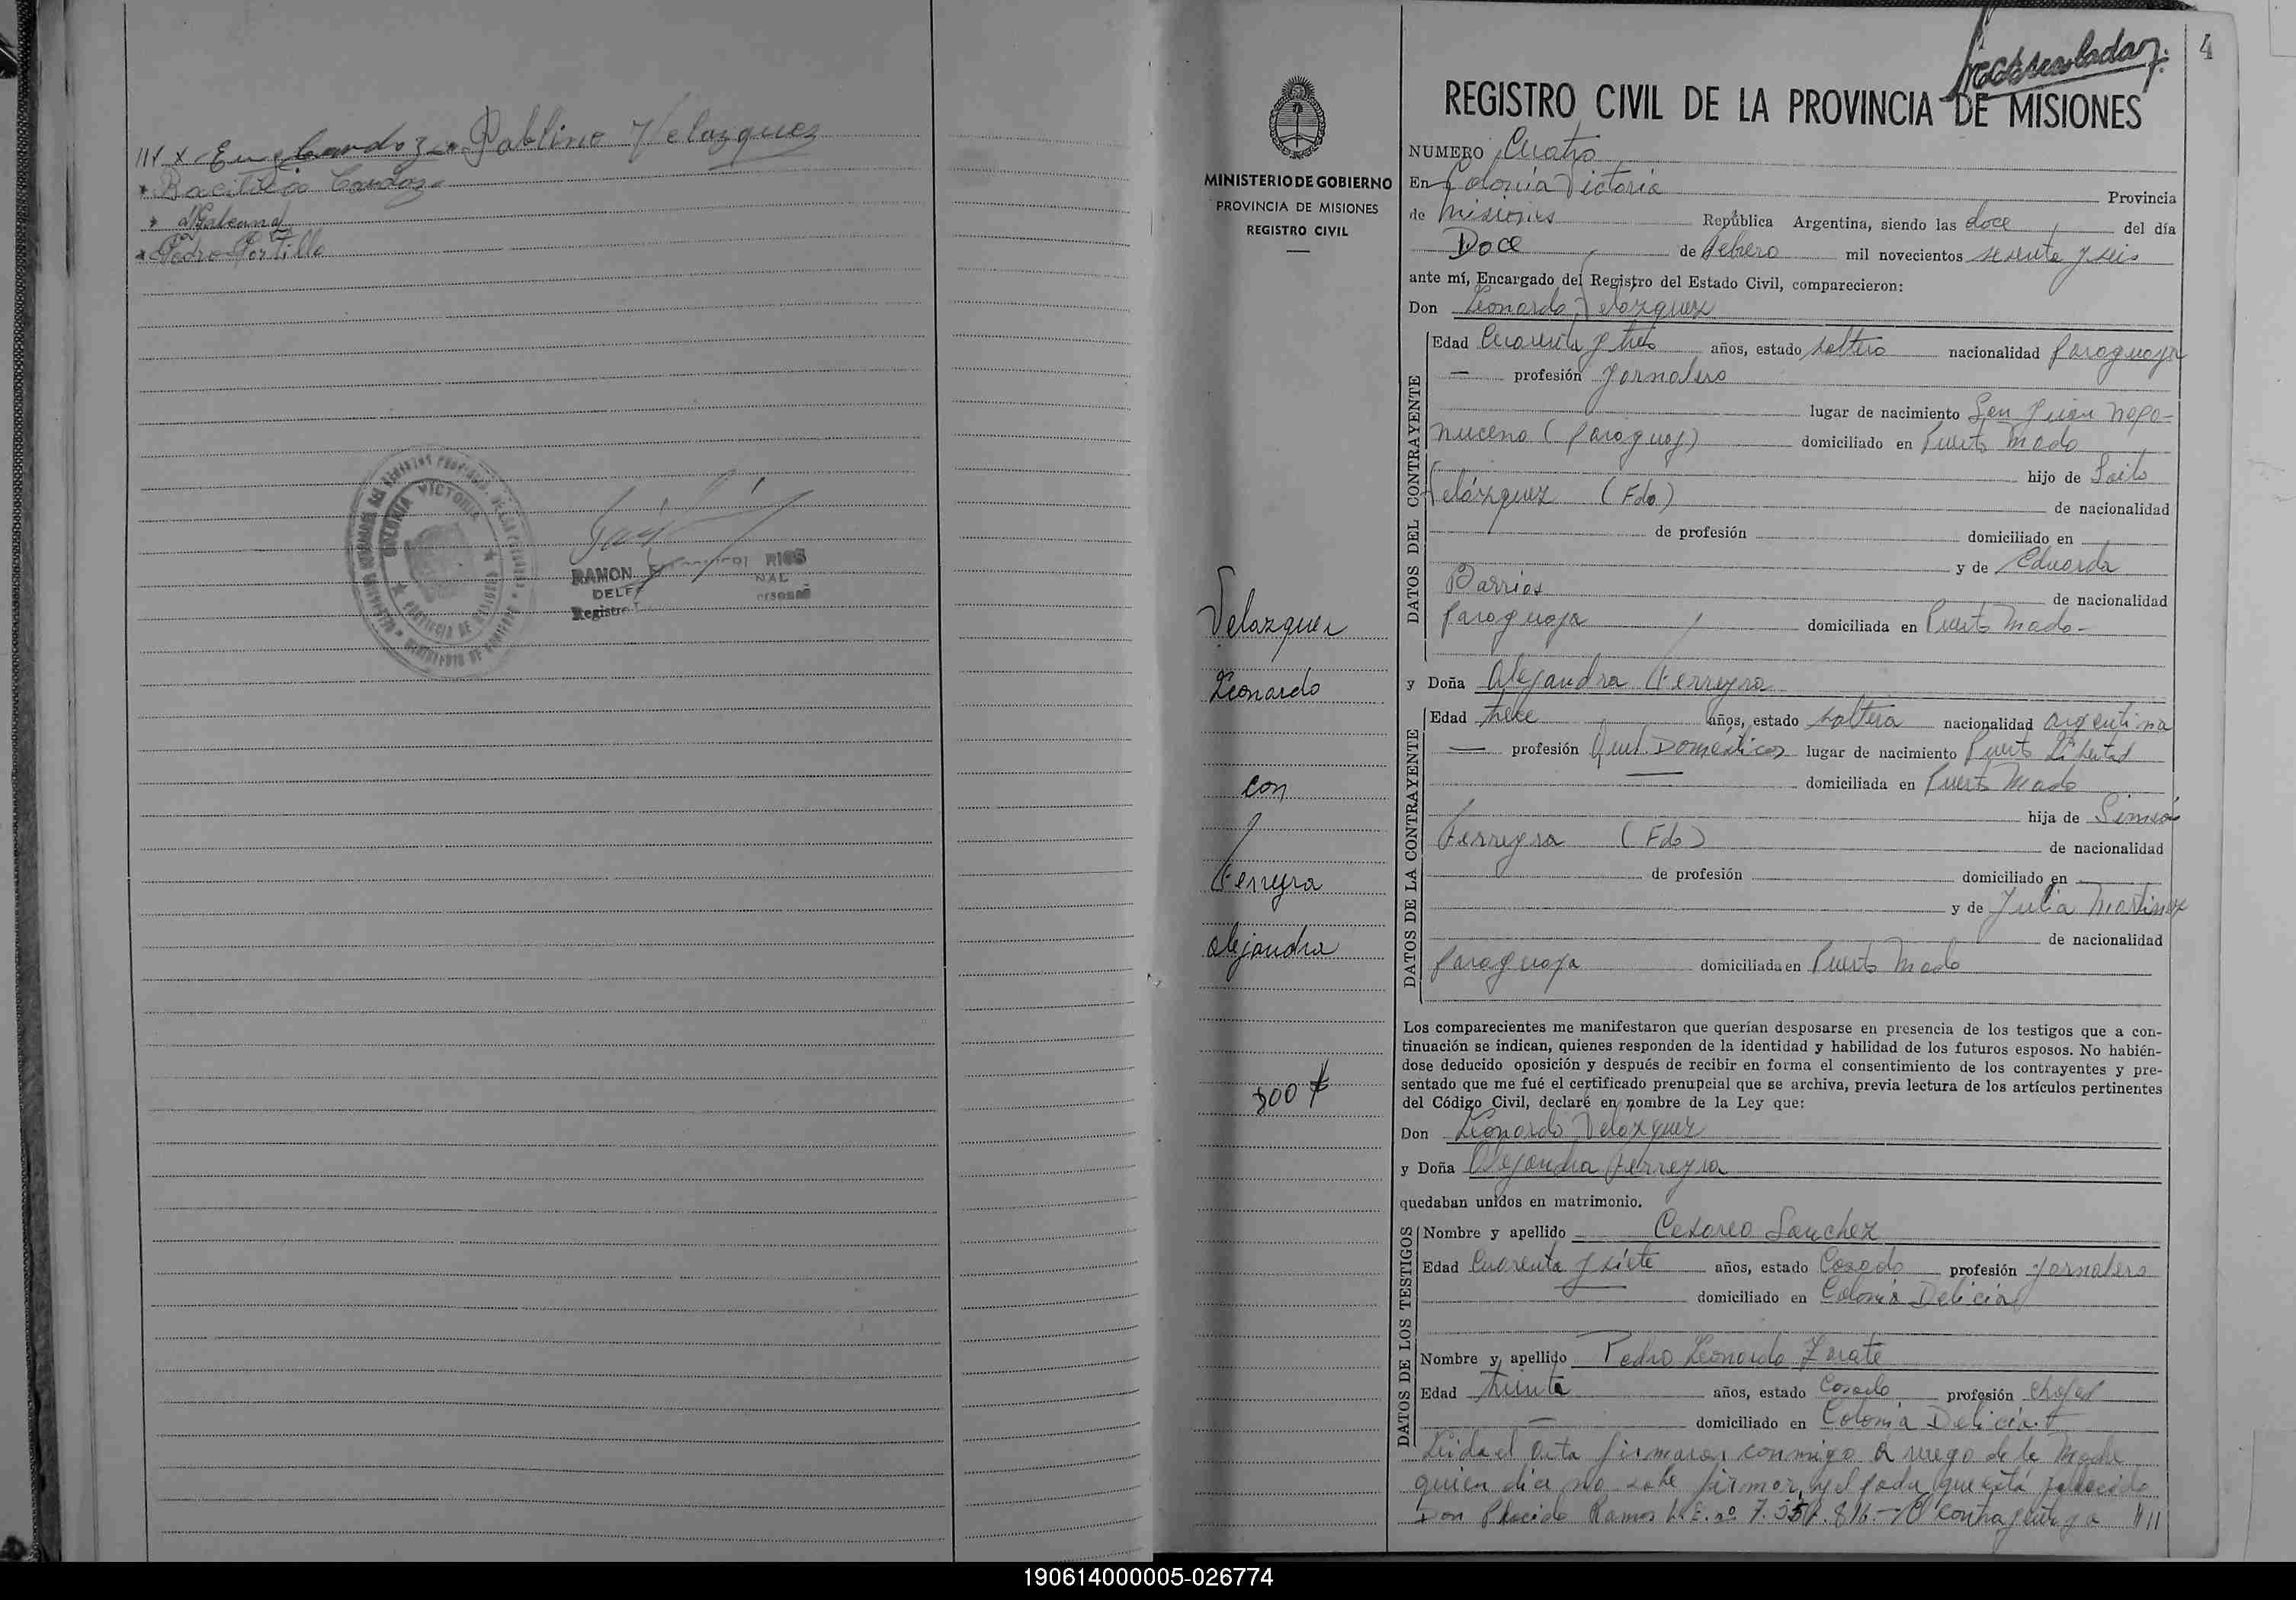 Pablino Velazquez
Cardozo
Galeano
Pedro Portillo
COLONIA VICTORIA
PROVINCIA DE MISIONES
RAMON RIOS
Registro
4
REGISTRO CIVIL DE LA PROVINCIA DE MISIONES
MINISTERIO DE GOBIERNO
PROVINCIA DE MISIONES
REGISTRO CIVIL
Velazquez
Leonardo
con
Ferreyra
Alejandra
NUMERO Cuatro
En Colonia Victoria Provincia
de Misiones República Argentina, siendo las doce del día
Doce de Febrero mil novecientos sesenta y seis
ante mí, Encargado del Registro del Estado Civil, comparecieron:
Don Leonardo Velazquez
DATOS DEL CONTRAYENTE
Edad Cuarenta y tres años, estado soltero nacionalidad paraguaya
— profesión Jornalero
lugar de nacimiento San Juan Nepo-
muceno (Paraguay) domiciliado en Puerto Mado
hijo de
Velázquez (Fdo) de nacionalidad
de profesión domiciliado en
y de Eduarda
Barrios de nacionalidad
paraguaya domiciliada en Puerto Mado-
y Doña Alejandra Ferreyra
DATOS DE LA CONTRAYENTE
Edad trece años, estado soltera nacionalidad argentina
— profesión Quel. Domésticos lugar de nacimiento Puerto Libertad
domiciliada en Puerto Mado
hija de Simeón
Ferreyra (Fdo) de nacionalidad
de profesión domiciliado en
y de Julia Martinez
de nacionalidad
paraguaya domiciliada en Puerto Mado
Los comparecientes me manifestaron que querían desposarse en presencia de los testigos que a con-
tinuación se indican, quienes responden de la identidad y habilidad de los futuros esposos. No habién-
dose deducido oposición y después de recibir en forma el consentimiento de los contrayentes y pre-
sentado que me fué el certificado prenupcial que se archiva, previa lectura de los artículos pertinentes
del Código Civil, declaré en nombre de la Ley que:
Don Leonardo Velazquez
y Doña Alejandra Ferreyra
quedaban unidos en matrimonio.
DATOS DE LOS TESTIGOS
Nombre y apellido Cesareo Sanchez
Edad Cuarenta y siete años, estado Casado profesión Jornalero
domiciliado en Colonia Delicia
Nombre y apellido Pedro Leonardo Zarate
Edad treinta años, estado Casado profesión chofer
— domiciliado en Colonia Delicia.
Leida el Acta firmaron conmigo a ruego de la Madre
quien dice no sabe firmar, y el padre que está fallecido
Don Placido Ramos L.E. nº
190614000005-026774